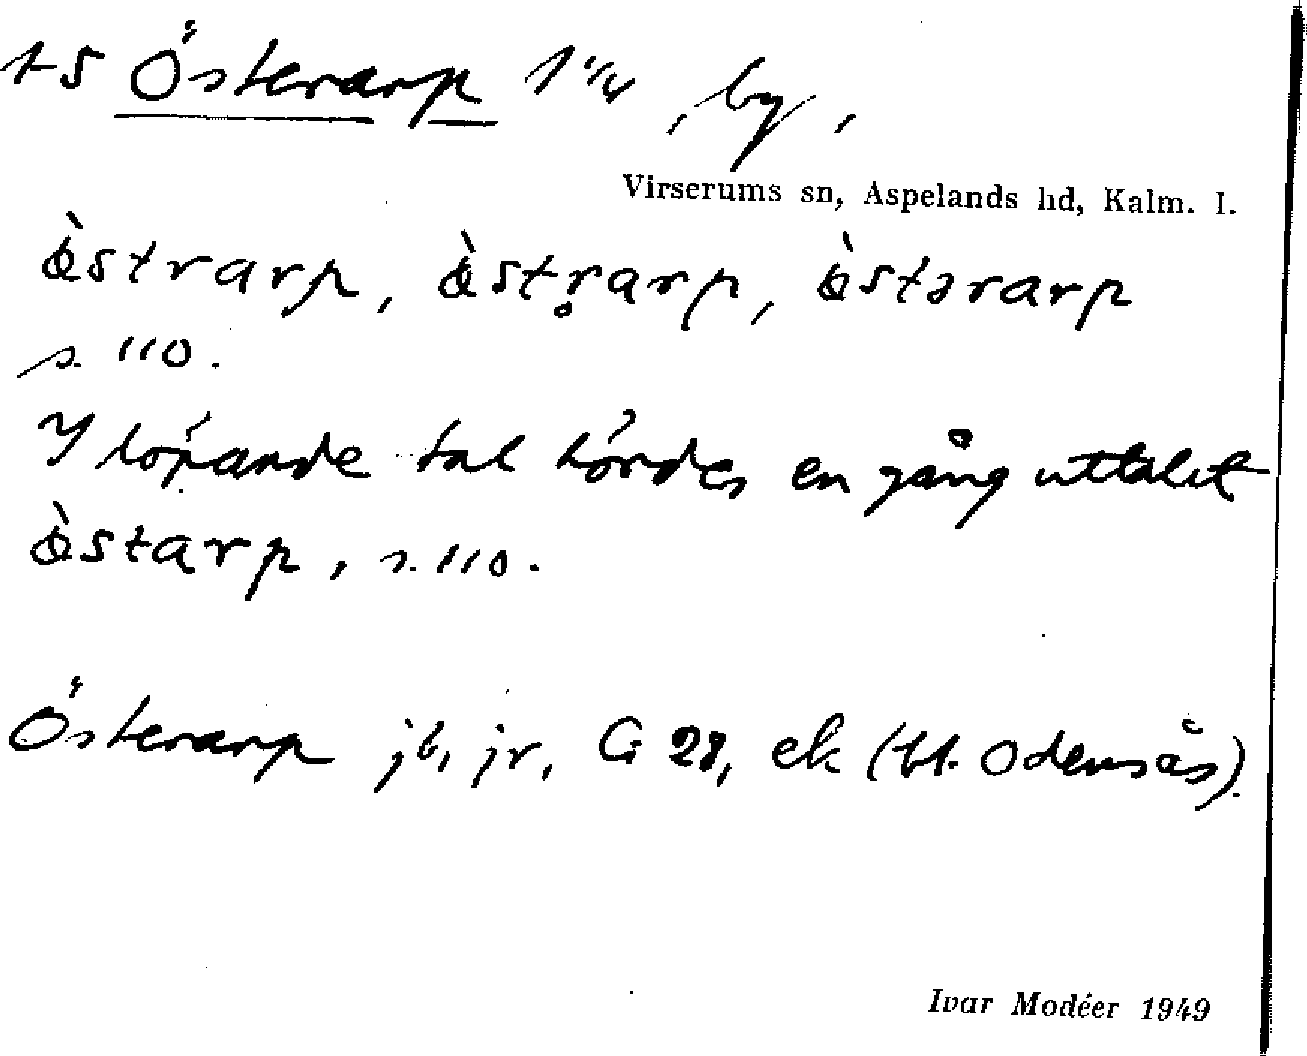 1-5 Österarp 1 1/4, by,
Virserums sn, Aspelands hd, Kalm. l.
ö̀strarp, ö̀str̥arp, ö̀stərarp
s. 110.
I löpande tal hördes en gång uttalet
ö̀starp, s. 110.
Österarp jb, jr, G 28, ek (bl. Odensås).
Ivar Modéer 1949